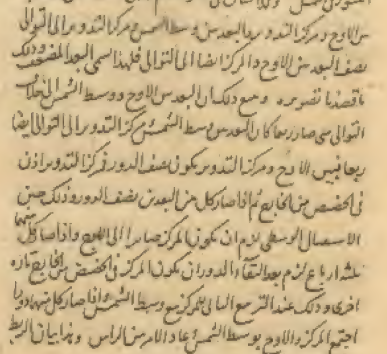 من الاوج ومركز التدوير والبعد من وسط الشمس ومركز التدوير الى التوالى
نصف البعد من الاوج والمركز ايضا الى التوالى فلهذا سمى البعد المضعف وذلك
ما قصدنا تصويره ومع ذلك ان البعد من الاوج ووسط الشمس الى خلاف
التوالى متى صار ربعا كان البعد من وسط الشمس ومركز التدوير الى التوالى ايضا
ربعا فبين الاوج ومركز التدوير يكون نصف الدور فمركز التدوير اذن
فى الحضيض من الخارج ثم اذا صار كل من البعدين نصف الدور وذلك حين
الاستقبال الوسطى لزم ان يكون المركز صايرا الى الاوج واذا صار كل منهما
ثلثة ارباع لزم بعد التقاء الدوران يكون المركز فى الحضيض من الخارج تارة
اخرى وذلك عند التربيع الثانى للمركز مع وسط الشمس واذا صار كل منهما دورا
اجتمع المركز والاوج بوسط الشمس وعاد الامر من الراس وهذا بيان الربط